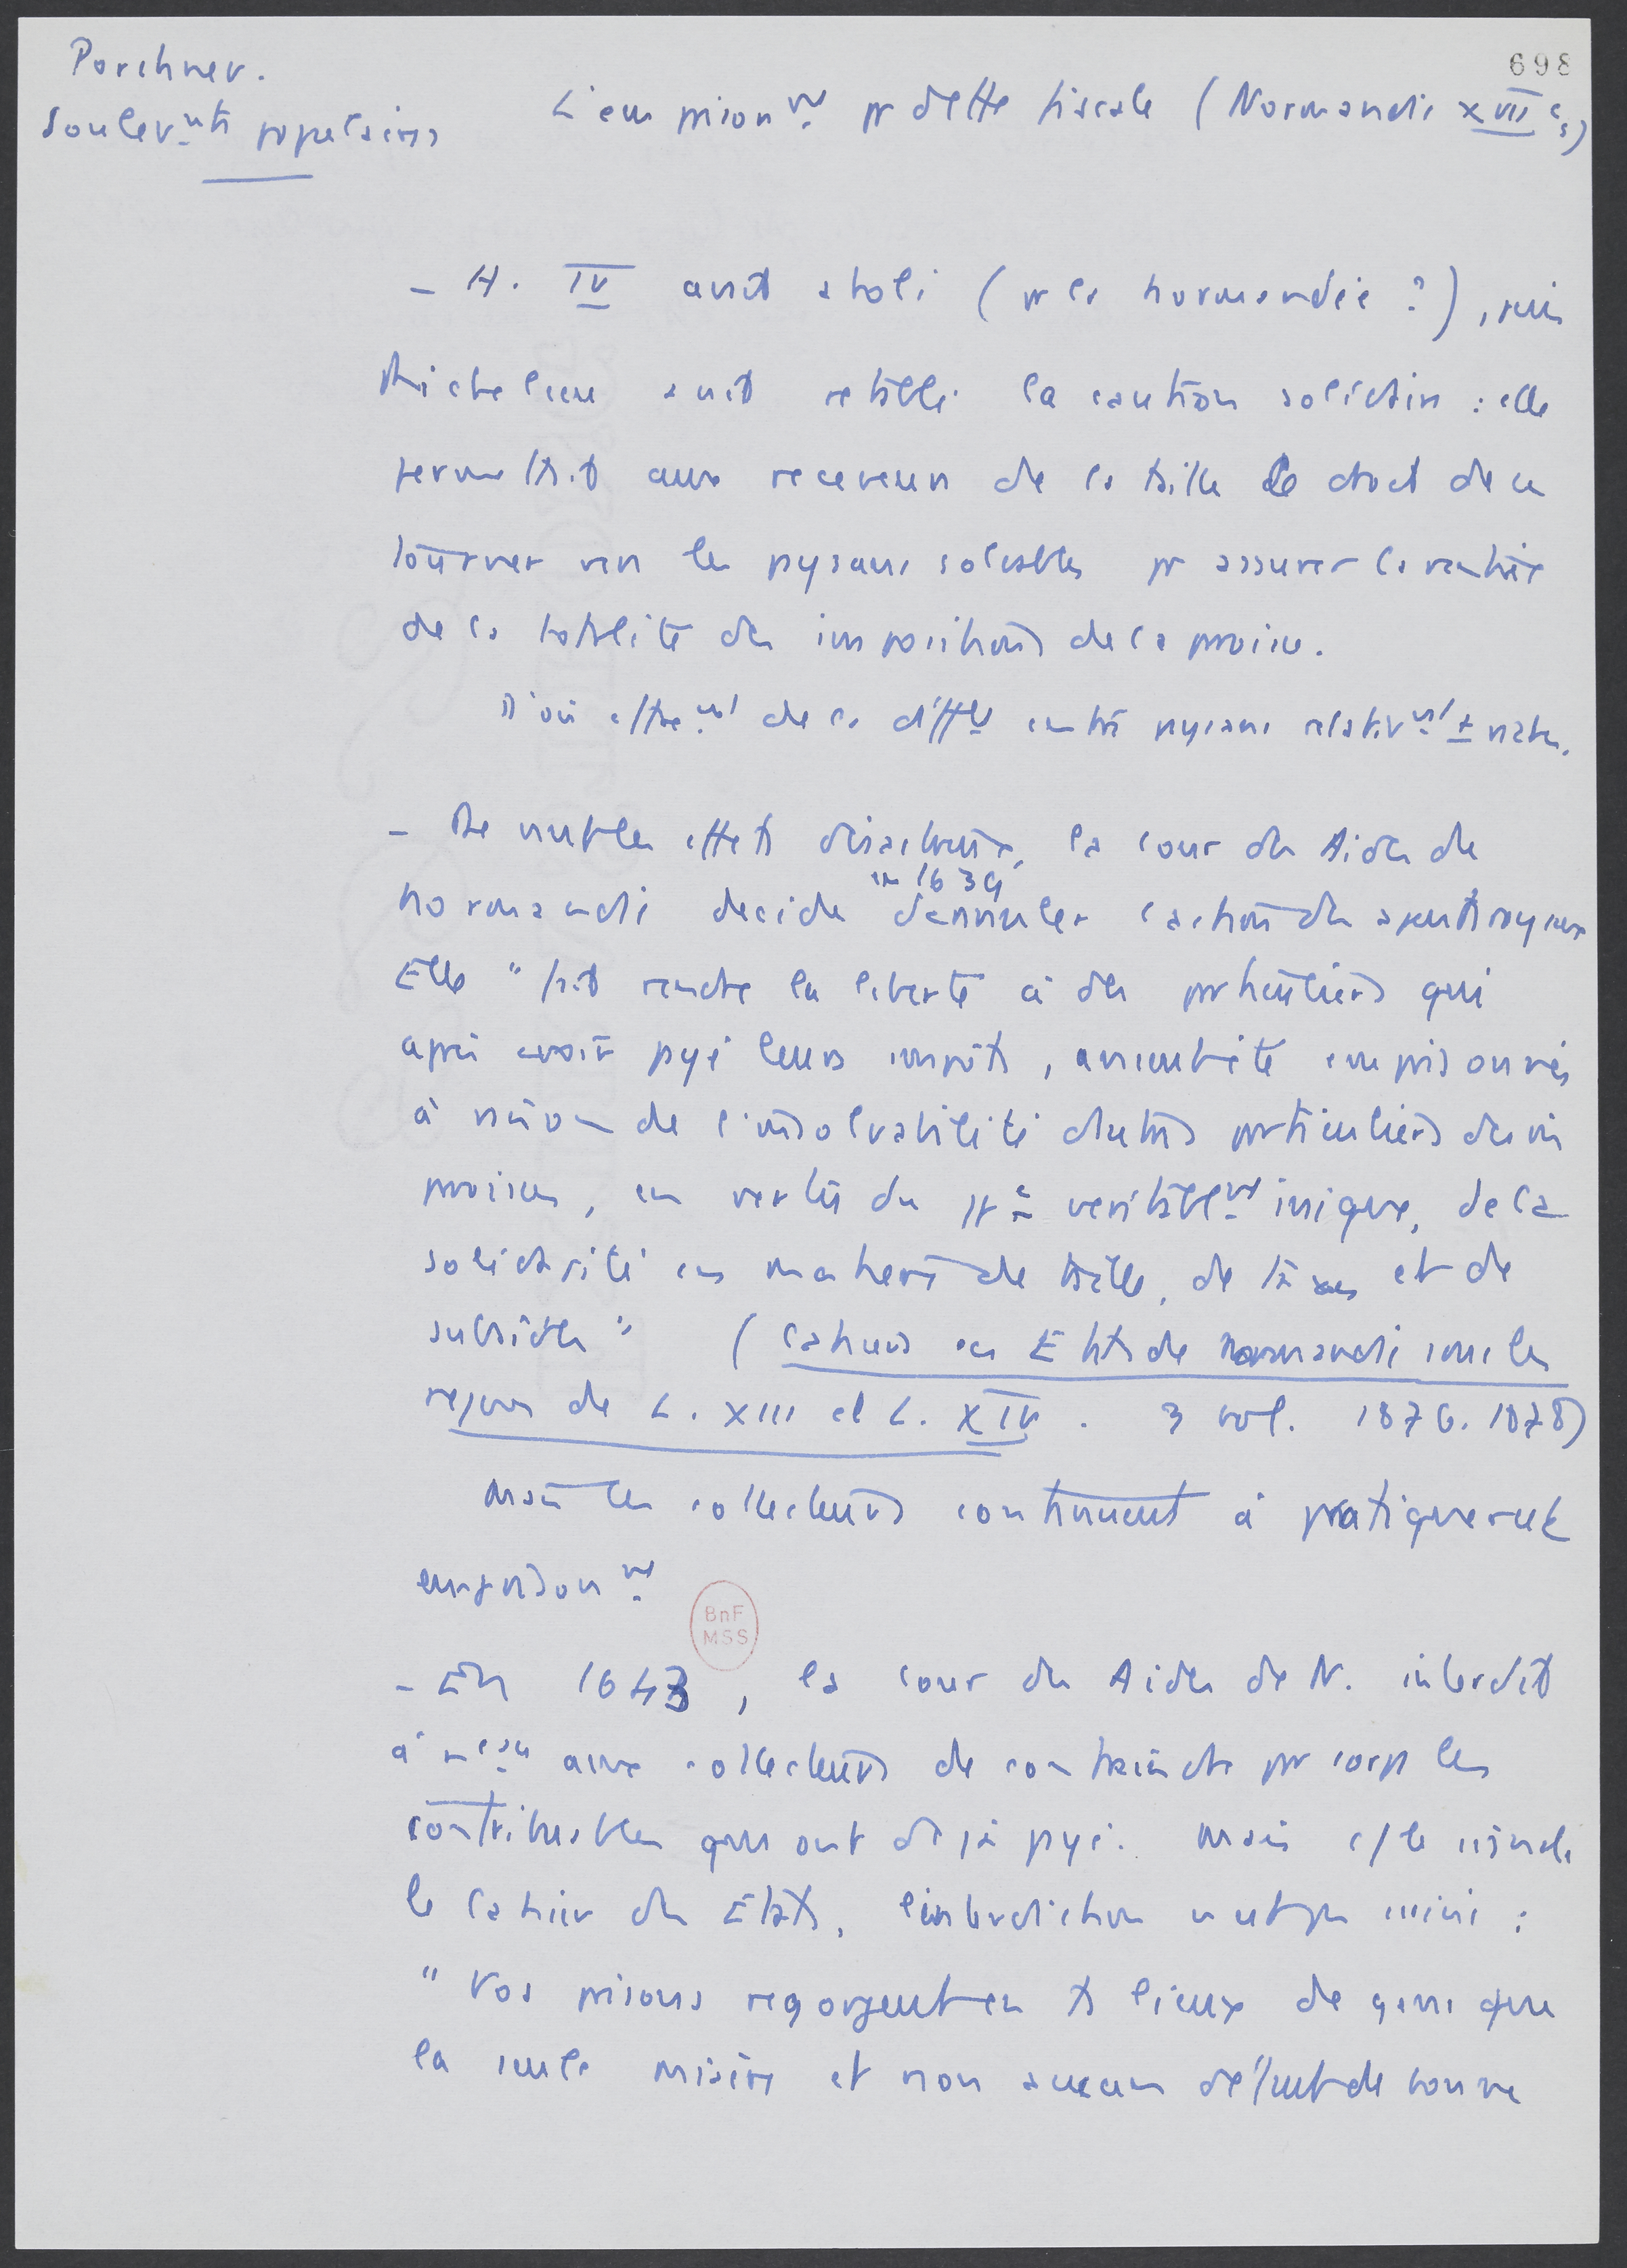 698
Porchnev.
Soulevnts populaires
L'emprisonnt pr dette fiscale (Normandie XVIIe s)
- H. IV avait aboli (pr la Normandie ?), puis
Richelieu avait rétabli la caution solidaire : elle
permettait aux receveurs de la taille le droit de se
tourner vers les paysans solvables pr assurer la rentrée
de la totalité des impositions de la paroisse.
D'où de la entre paysans relativnt +
- De multiples effets désastreux, la Cour des Aides de
en 1639
Normandie décide d'annuler l'action des agents royaux
Elle "fait rendre la liberté à des particuliers qui
après avoir payé leurs impôts, avaient été emprisonnés
à raison de l'insolvabilité d'autres particuliers de
paroisses, en vertu du pr e véritablnt inique, de la
solidarité en matière de taille, de taxes et de
subsides" (Cahiers des Etats de Normandie sous les
règnes de L. XIII et L. XIV. 3 vol. 1876. 1878)
Mais les collecteurs continuent à pratiquer cet
emprisonnt
BnF
MSS
- En 1643, la Cour des Aides de N. interdit
à nveau aux collecteurs de contraindre par corps les
contribuables qui ont déjà payé. Mais c/ le
le Cahier des Etats, l'interdiction n'est pas :
"Vos prisons regorgent en ts lieux de gens que
la seule misère et non aucun défaut de bonne